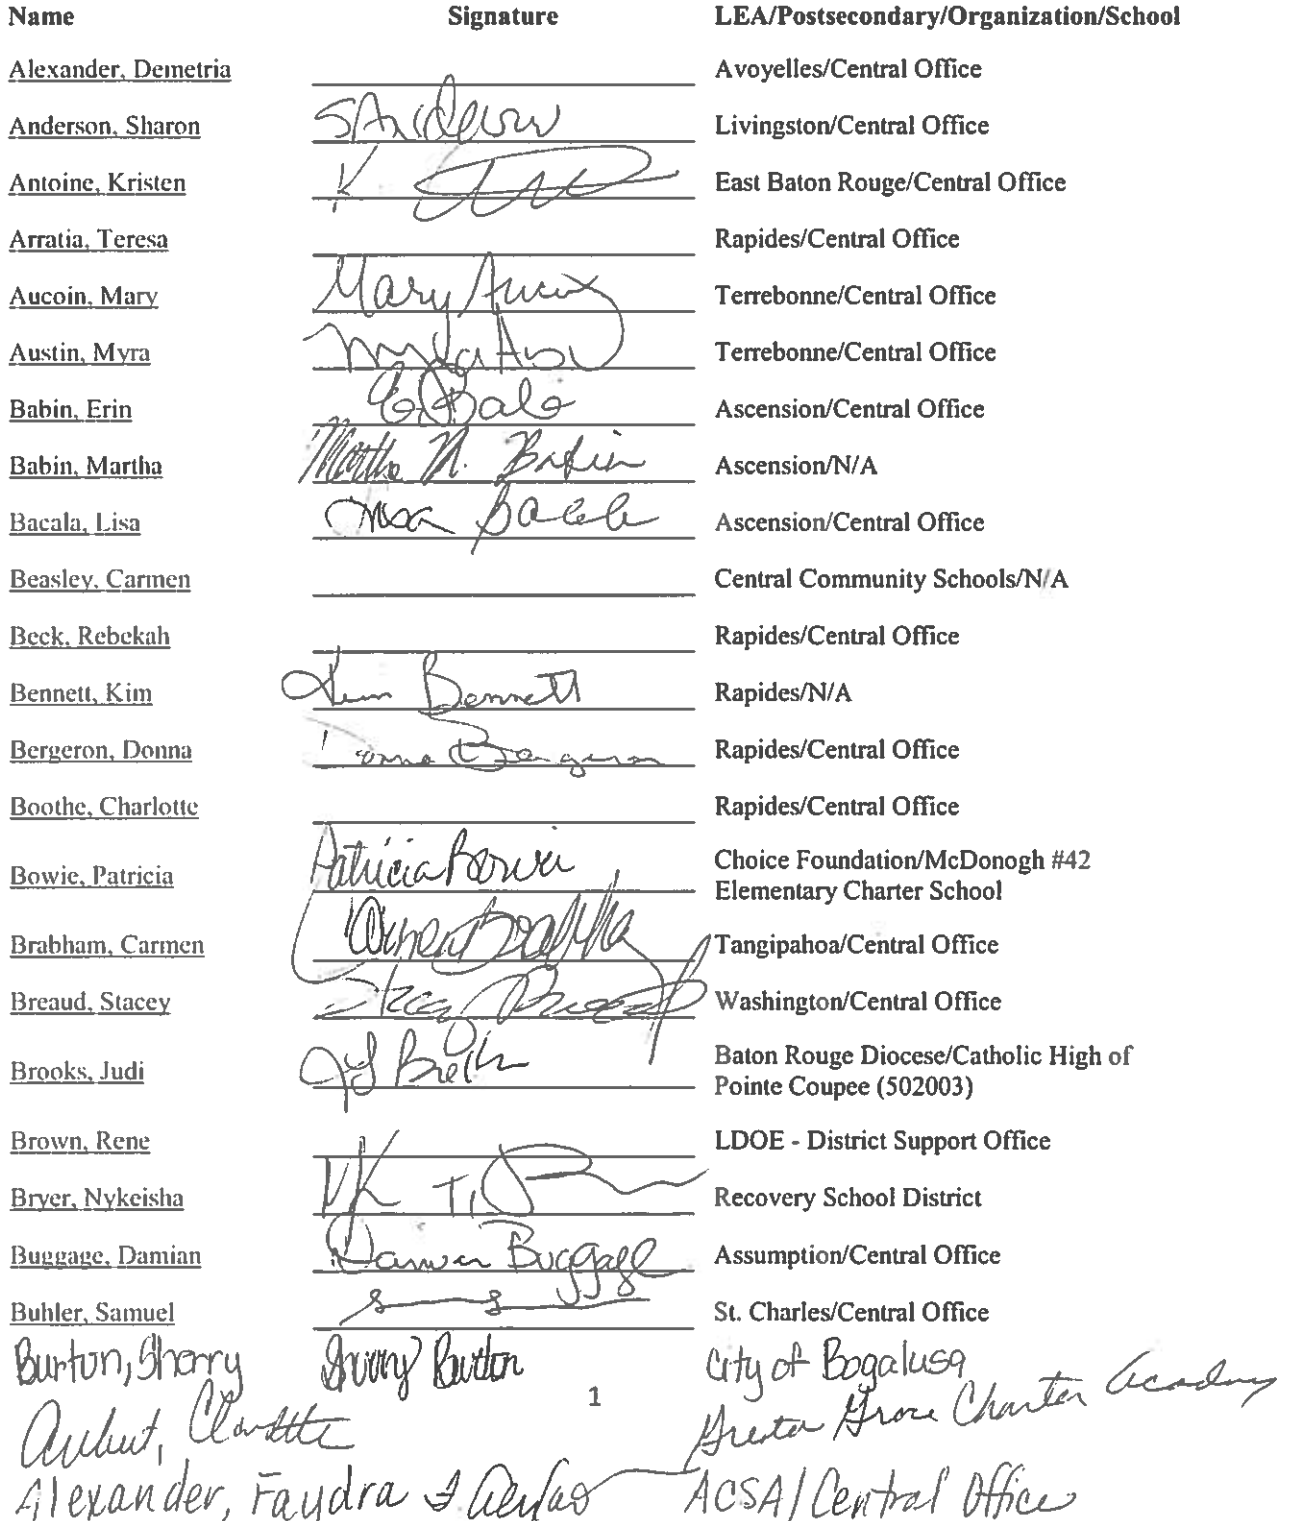 Name Signature LEA/Postsecondary/Organization/School
Alexander, Demetria Avoyelles/Central Office
Anderson, Sharon SAnderson Livingston/Central Office
Antoine, Kristen K East Baton Rouge/Central Office
Arratia, Teresa Rapides/Central Office
Aucoin, Mary Mary Aucoin Terrebonne/Central Office
Austin, Myra Myra Austin Terrebonne/Central Office
Babin, Erin E. Babin Ascension/Central Office
Babin, Martha Martha N. Babin Ascension/N/A
Bacala, Lisa Lisa Bacala Ascension/Central Office
Beasley, Carmen Central Community Schools/N/A
Beck, Rebekah Rapides/Central Office
Bennett, Kim Kim Bennett Rapides/N/A
Bergeron, Donna Donna Bergeron Rapides/Central Office
Boothe, Charlotte Rapides/Central Office
Bowie, Patricia Patricia Bowie Choice Foundation/McDonogh #42
Elementary Charter School
Brabham, Carmen Carmen Brabham Tangipahoa/Central Office
Breaud, Stacey Stacey Breaud Washington/Central Office
Brooks, Judi Baton Rouge Diocese/Catholic High of
Pointe Coupee (502003)
Brown, Rene LDOE - District Support Office
Bryer, Nykeisha Recovery School District
Buggage, Damian Damian Buggage Assumption/Central Office
Buhler, Samuel St. Charles/Central Office
Burton, Sherry Sherry Burton City of Bogalusa
1
Greater Grace Charter Academy
Alexander, Faydra ACSA/Central Office